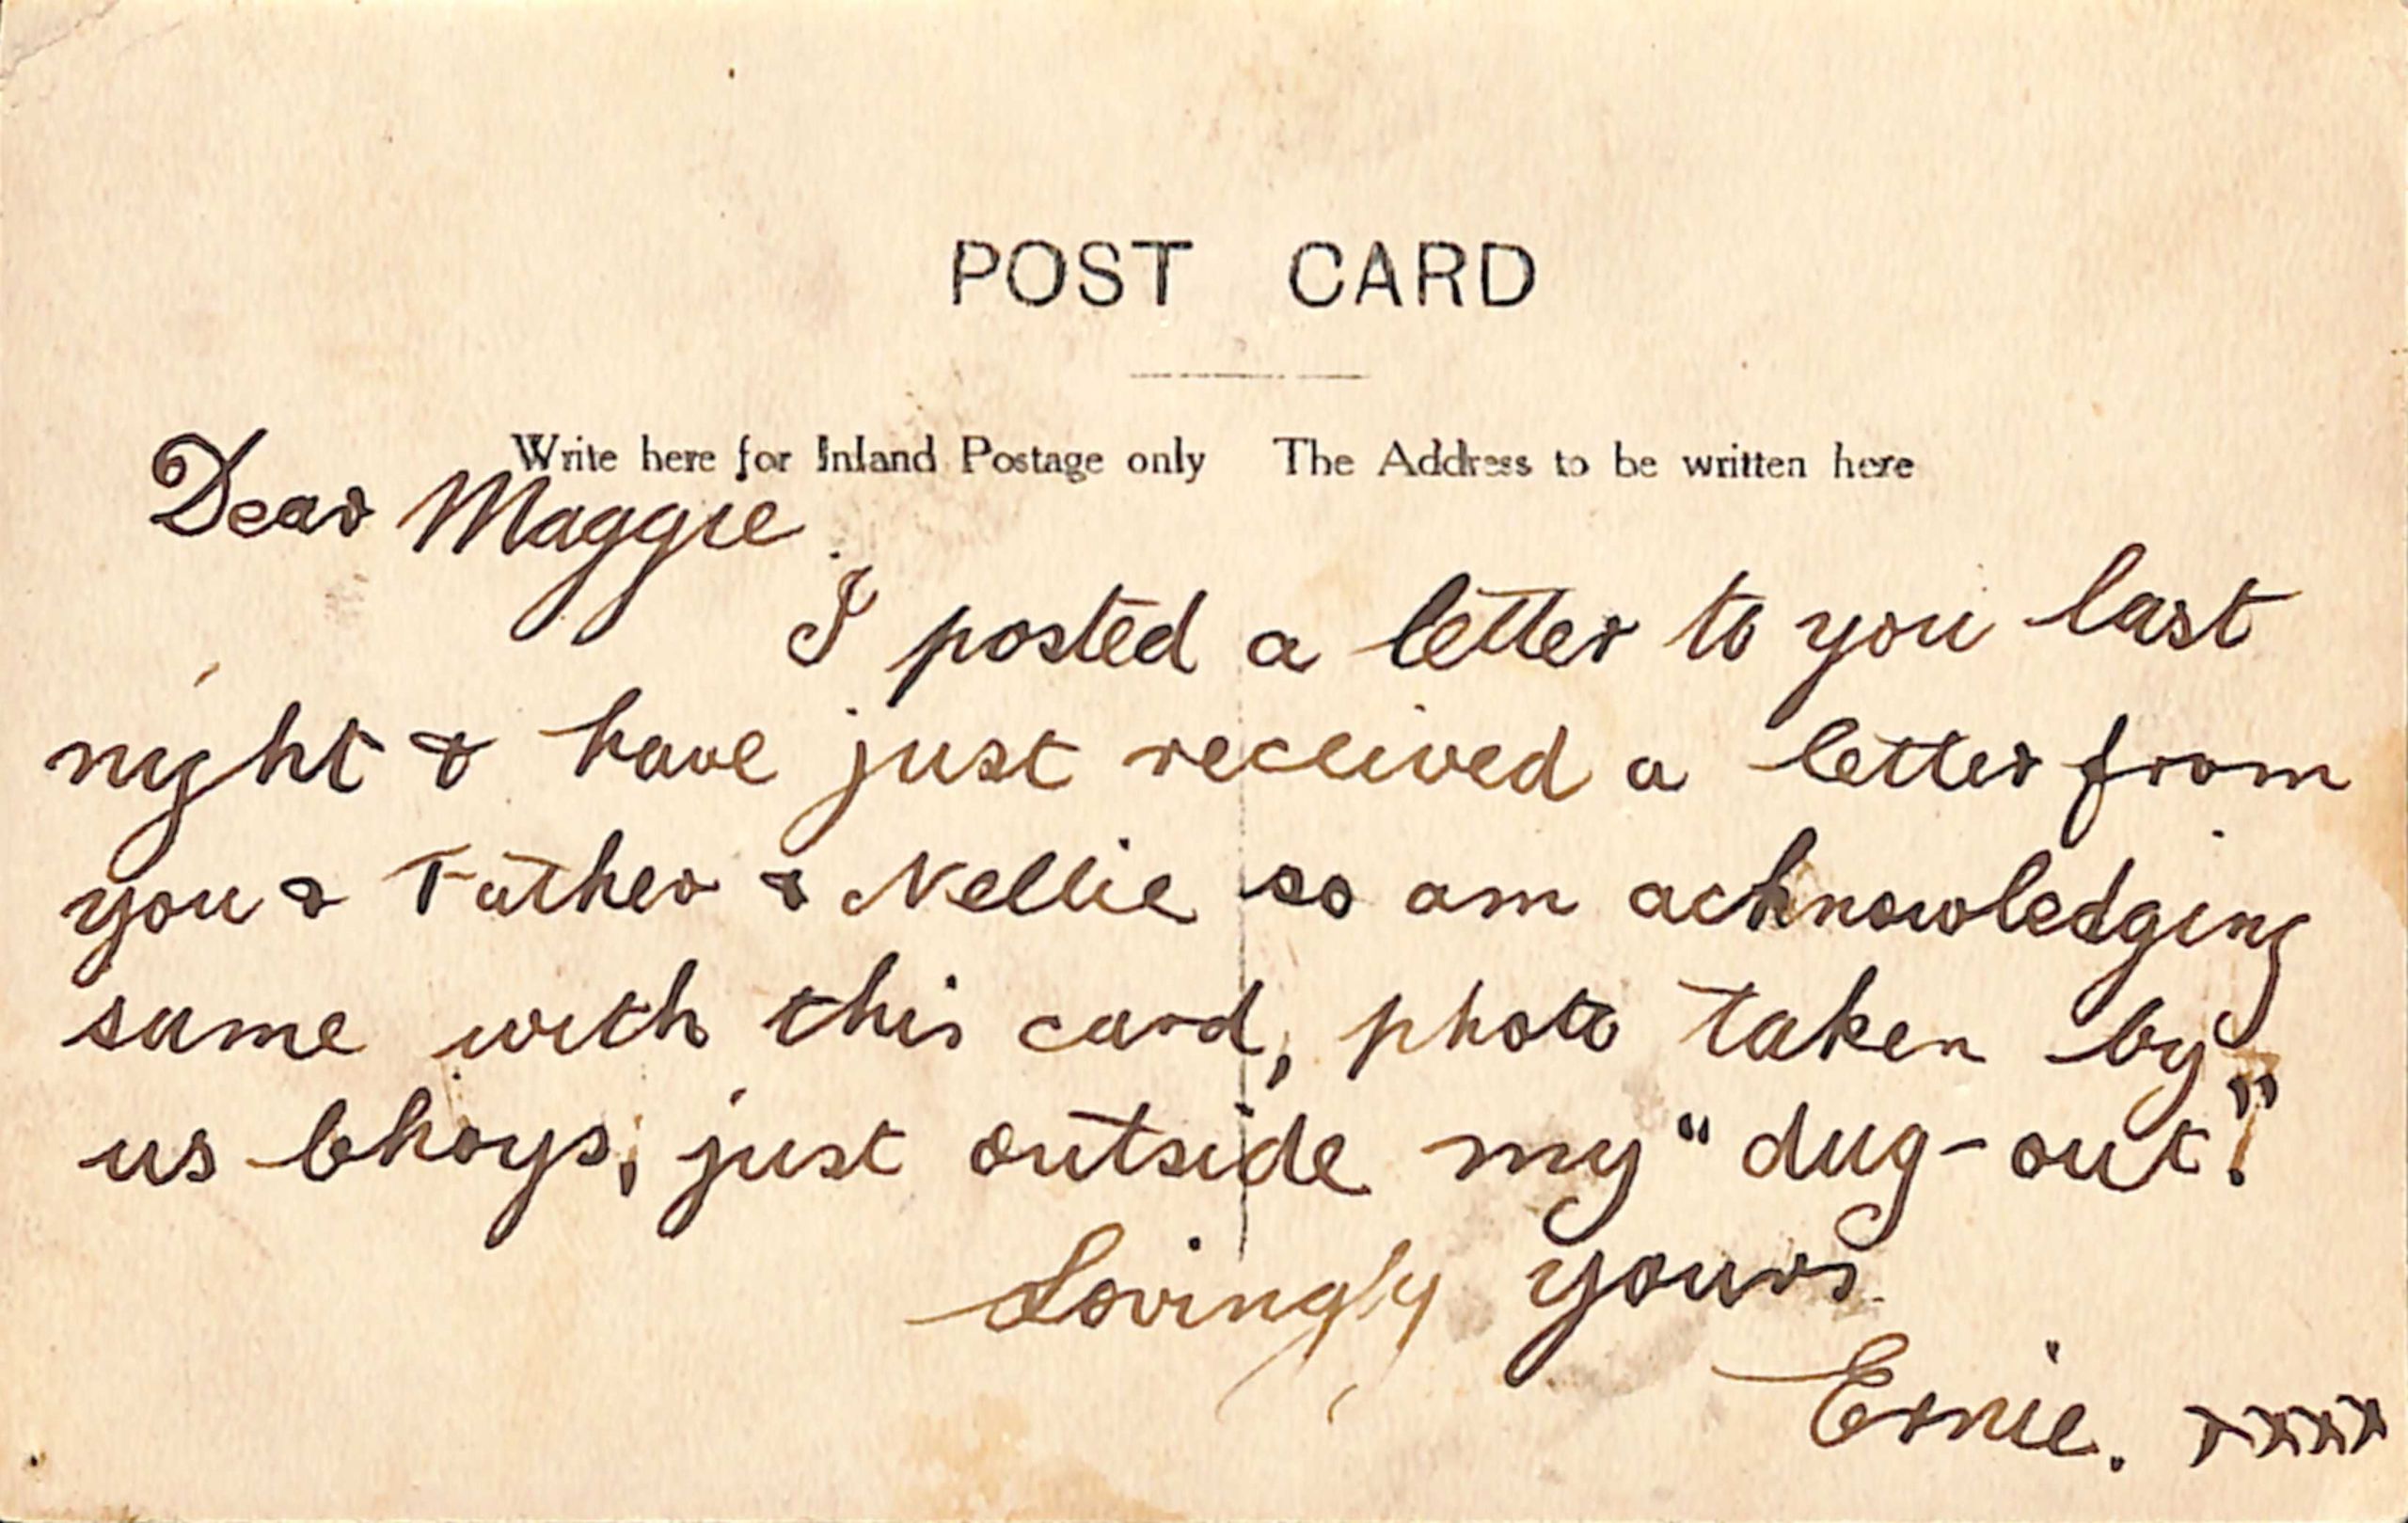 POST CARD
Write here for Inland Postage only The Address to be written here
Dear Maggie
I posted a letter to you last
night & have just received a letter from
you & Father & Nellie so am acknowledging
same with this card, photo taken by
us bhoys, just outside my "dug-out".
Lovingly yours
Ernie. xxxx